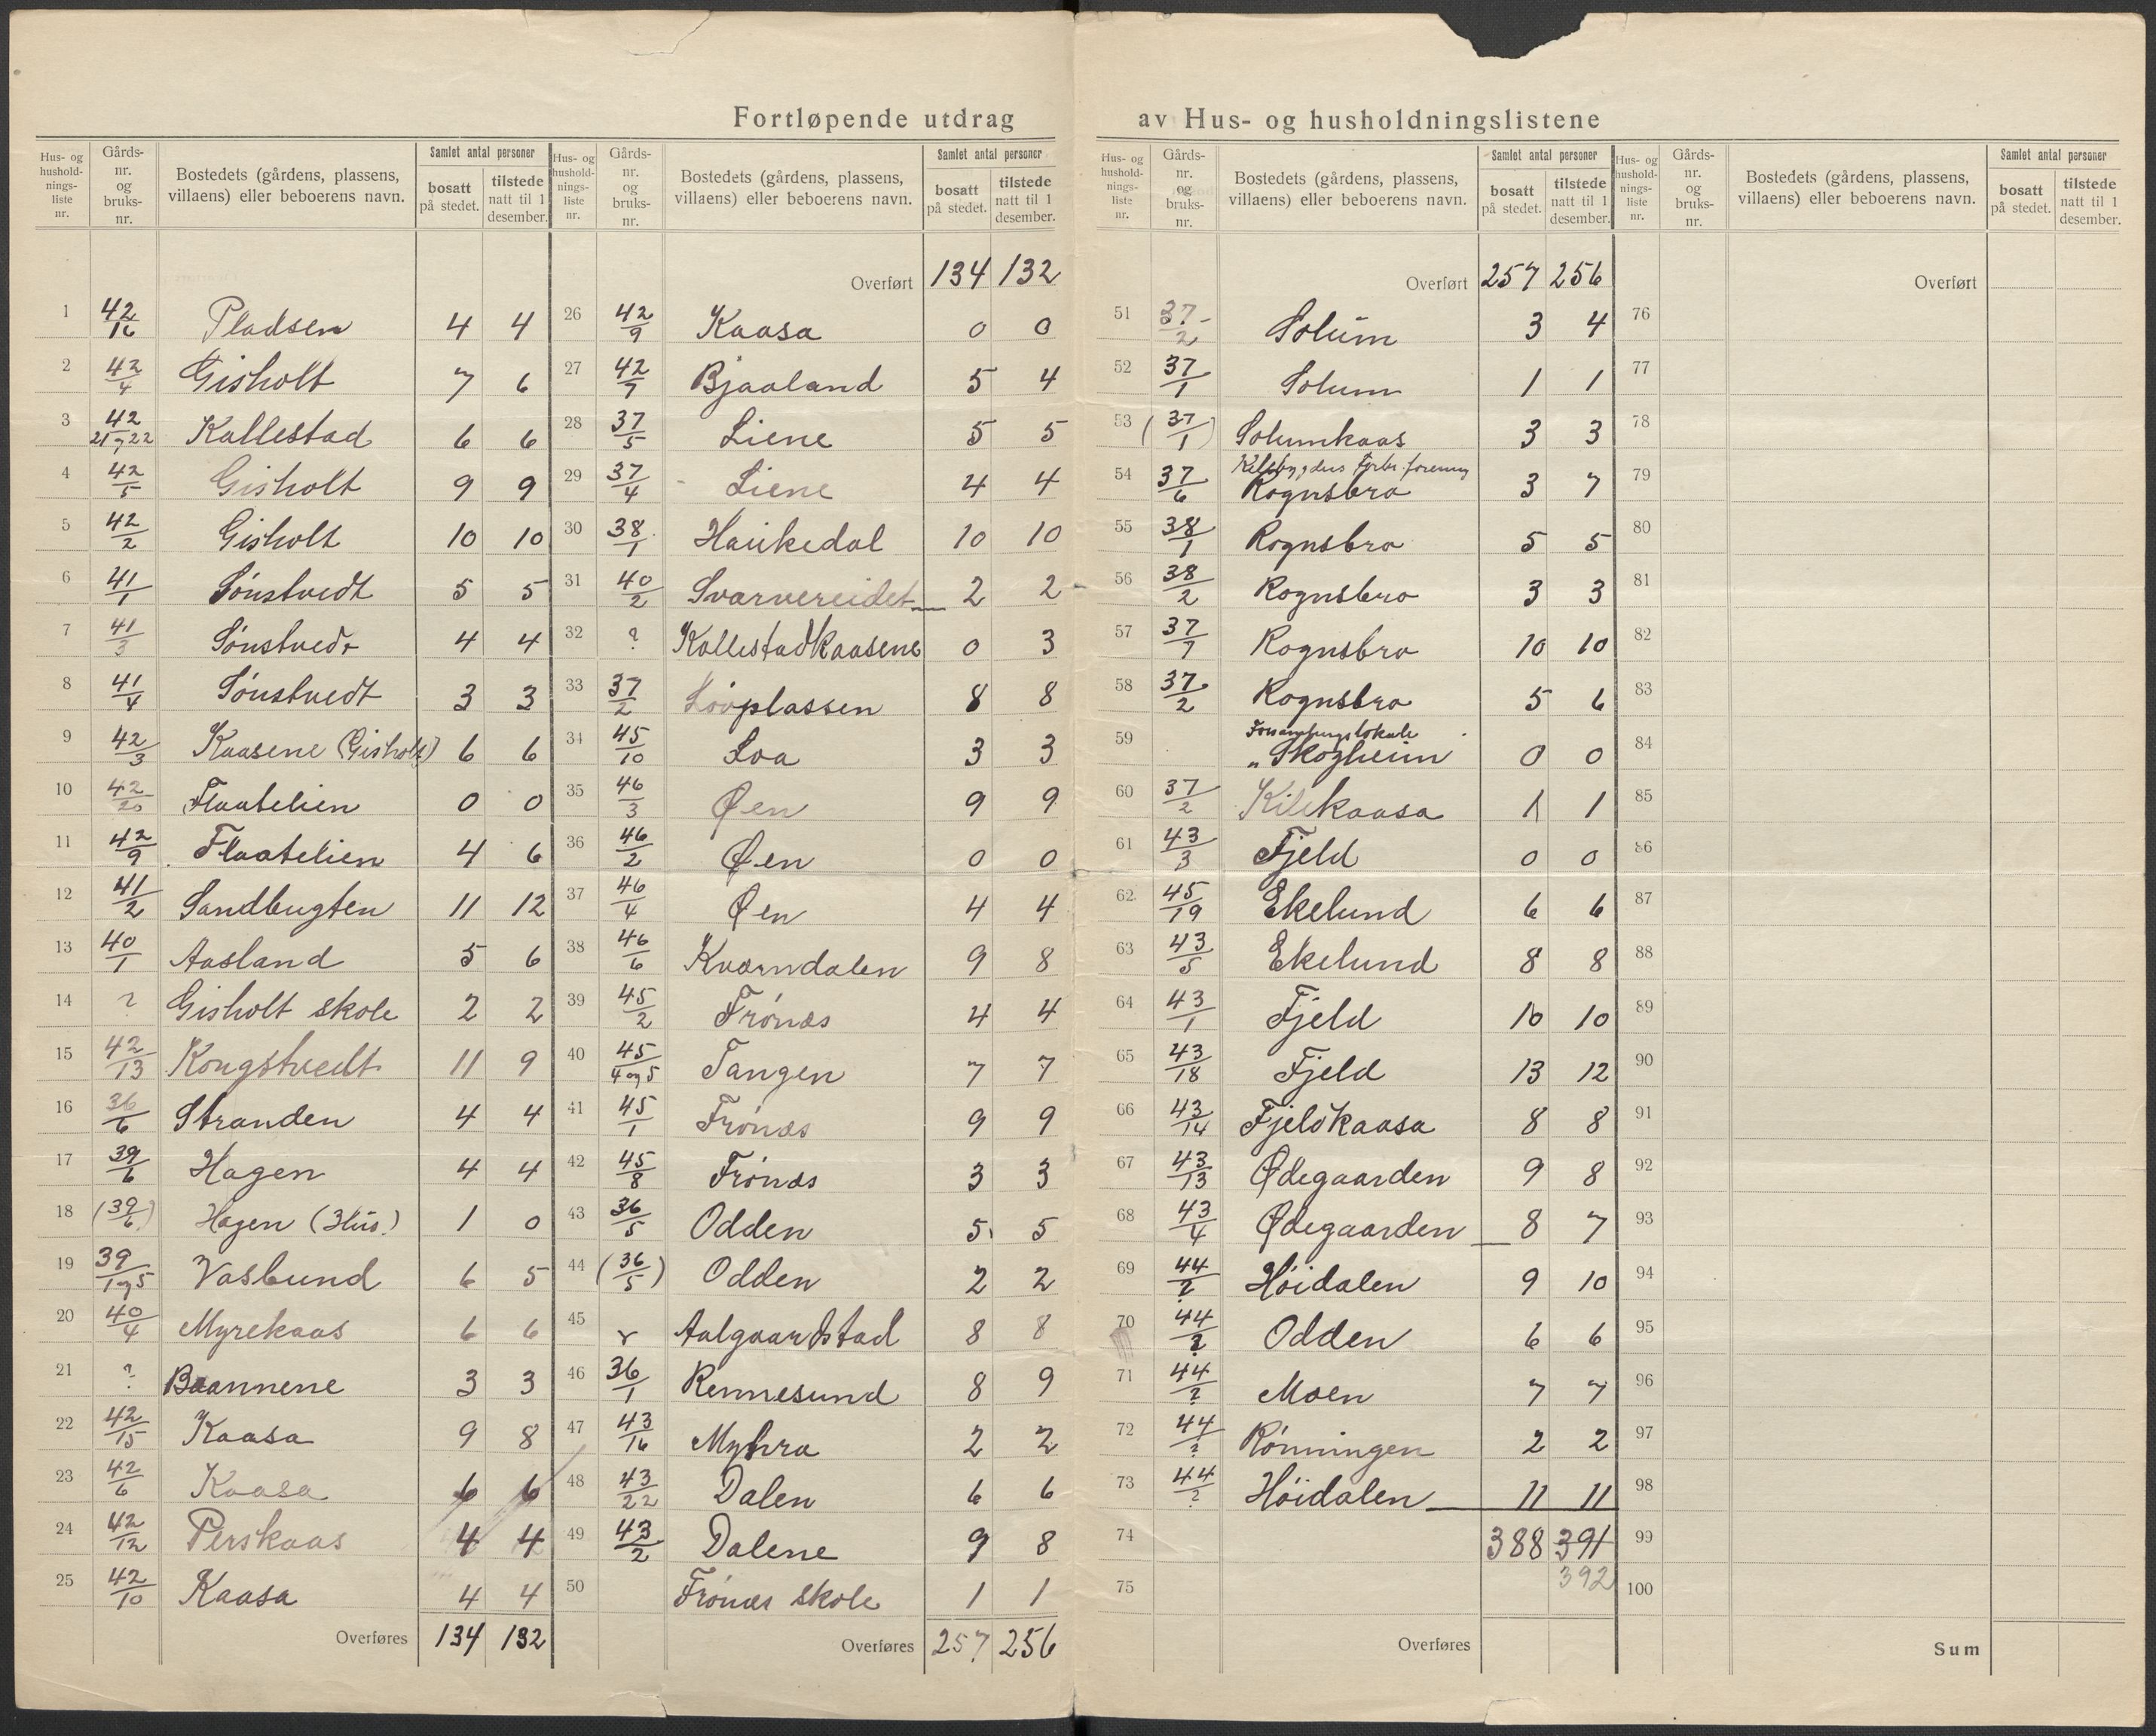 Fortløpende utdrag av Hus- og husholdningslistene
Hus- og hushold- nings- liste nr. | Gårds- nr. og bruks- nr. | Bostedets (gårdens, plassens, villaens) eller beboerens navn. | Samlet antal personer | bosatt på stedet. | tilstede natt til 1 desember.
1 42/16 Pladsen 4 4
2 42/4 Gisholt 7 6
3 42/21 og 22 Kallestad 6 6
4 42/5 Gisholt 9 9
5 42/2 Gisholt 10 10
6 41/1 Sønstvedt 5 5
7 41/3 Sønstvedt 4 4
8 41/4 Sønstvedt 3 3
9 42/3 Kaasene (Gisholt) 6 6
10 42/20 Flaatelien 0 0
11 42/9 Flaatelien 4 6
12 41/2 Sandbugten 11 12
13 40/1 Aasland 5 6
14 ? Gisholt skole 2 2
15 42/13 Kongstvedt 11 9
16 36/6 Stranden 4 4
17 39/6 Hagen 4 4
18 (39/6) Hagen (3 Hus.) 1 0
19 39/1 og 5 Vasbund 6 5
20 40/4 Myrekaas 6 6
21 ? Baannene 3 3
22 42/15 Kaasa 9 8
23 42/6 Kaasa 6 6
24 42/12 Perskaas 4 4
25 42/10 Kaasa 4 4
Overføres 134 132
Hus- og hushold- nings- liste nr. | Gårds- nr. og bruks- nr. | Bostedets (gårdens, plassens, villaens) eller beboerens navn. | Samlet antal personer | bosatt på stedet. | tilstede natt til 1 desember.
Overført 134 132
26 42/9 Kaasa 0 0
27 42/7 Bjaaland 5 4
28 37/5 Liene 5 5
29 37/4 Liene 4 4
30 38/1 Haukedal 10 10
31 40/2 Svarvereidet 2 2
32 ? Kallestadkaasene 0 3
33 37/2 Lovplassen 8 8
34 45/10 Loa 3 3
35 46/3 Øen 9 9
36 46/2 Øen 0 0
37 46/4 Øen 4 4
38 46/6 Kværndalen 9 8
39 45/2 Frónæs 4 4
40 45/4 og 5 Tangen 7 7
41 45/1 Frónæs 9 9
42 45/8 Frónæs 3 3
43 36/5 Odden 5 5
44 (36/5) Odden 2 2
45 Aalgaardstad 8 8
46 36/1 Rennesund 8 9
47 43/16 Myhra 2 2
48 43/22 Dalen 6 6
49 43/2 Dalene 9 8
50 Frónæs skole 1 1
Overføres 257 256
Hus- og hushold- nings- liste nr. | Gårds- nr. og bruks- nr. | Bostedets (gårdens, plassens, villaens) eller beboerens navn. | Samlet antal personer | bosatt på stedet. | tilstede natt til 1 desember.
Overført 257 256
51 37/2 Solum 3 4
52 37/1 Solum 1 1
53 (37/1) Solumkaas 3 3
54 37/6 Kilebygdens forbr. forening
Rognsbro 3 7
55 38/1 Rognsbro 5 5
56 38/2 Rognsbro 3 3
57 37/7 Rognsbro 10 10
58 37/2 Rognsbro 5 6
59 Forsamlingslokale
"Skogheim 0 0
60 37/2 Kilekaasa 1 1
61 43/3 Fjeld 0 0
62 45/19 Ekelund 6 6
63 43/5 Ekelund 8 8
64 43/1 Fjeld 10 10
65 43/18 Fjeld 13 12
66 43/14 Fjeldkaasa 8 8
67 43/13 Ødegaarden 9 8
68 43/4 Ødegaarden 8 7
69 44/? Høidalen 9 10
70 44/? Odden 6 6
71 44/? Moen 7 7
72 44/? Rønningen 2 2
73 44/? Høidalen 11 11
74 388 391
75 392
Overføres
Hus- og hushold- nings- liste nr. | Gårds- nr. og bruks- nr. | Bostedets (gårdens, plassens, villaens) eller beboerens navn. | Samlet antal personer | bosatt på stedet. | tilstede natt til 1 desember.
Overført
76
77
78
79
80
81
82
83
84
85
86
87
88
89
90
91
92
93
94
95
96
97
98
99
100
Sum